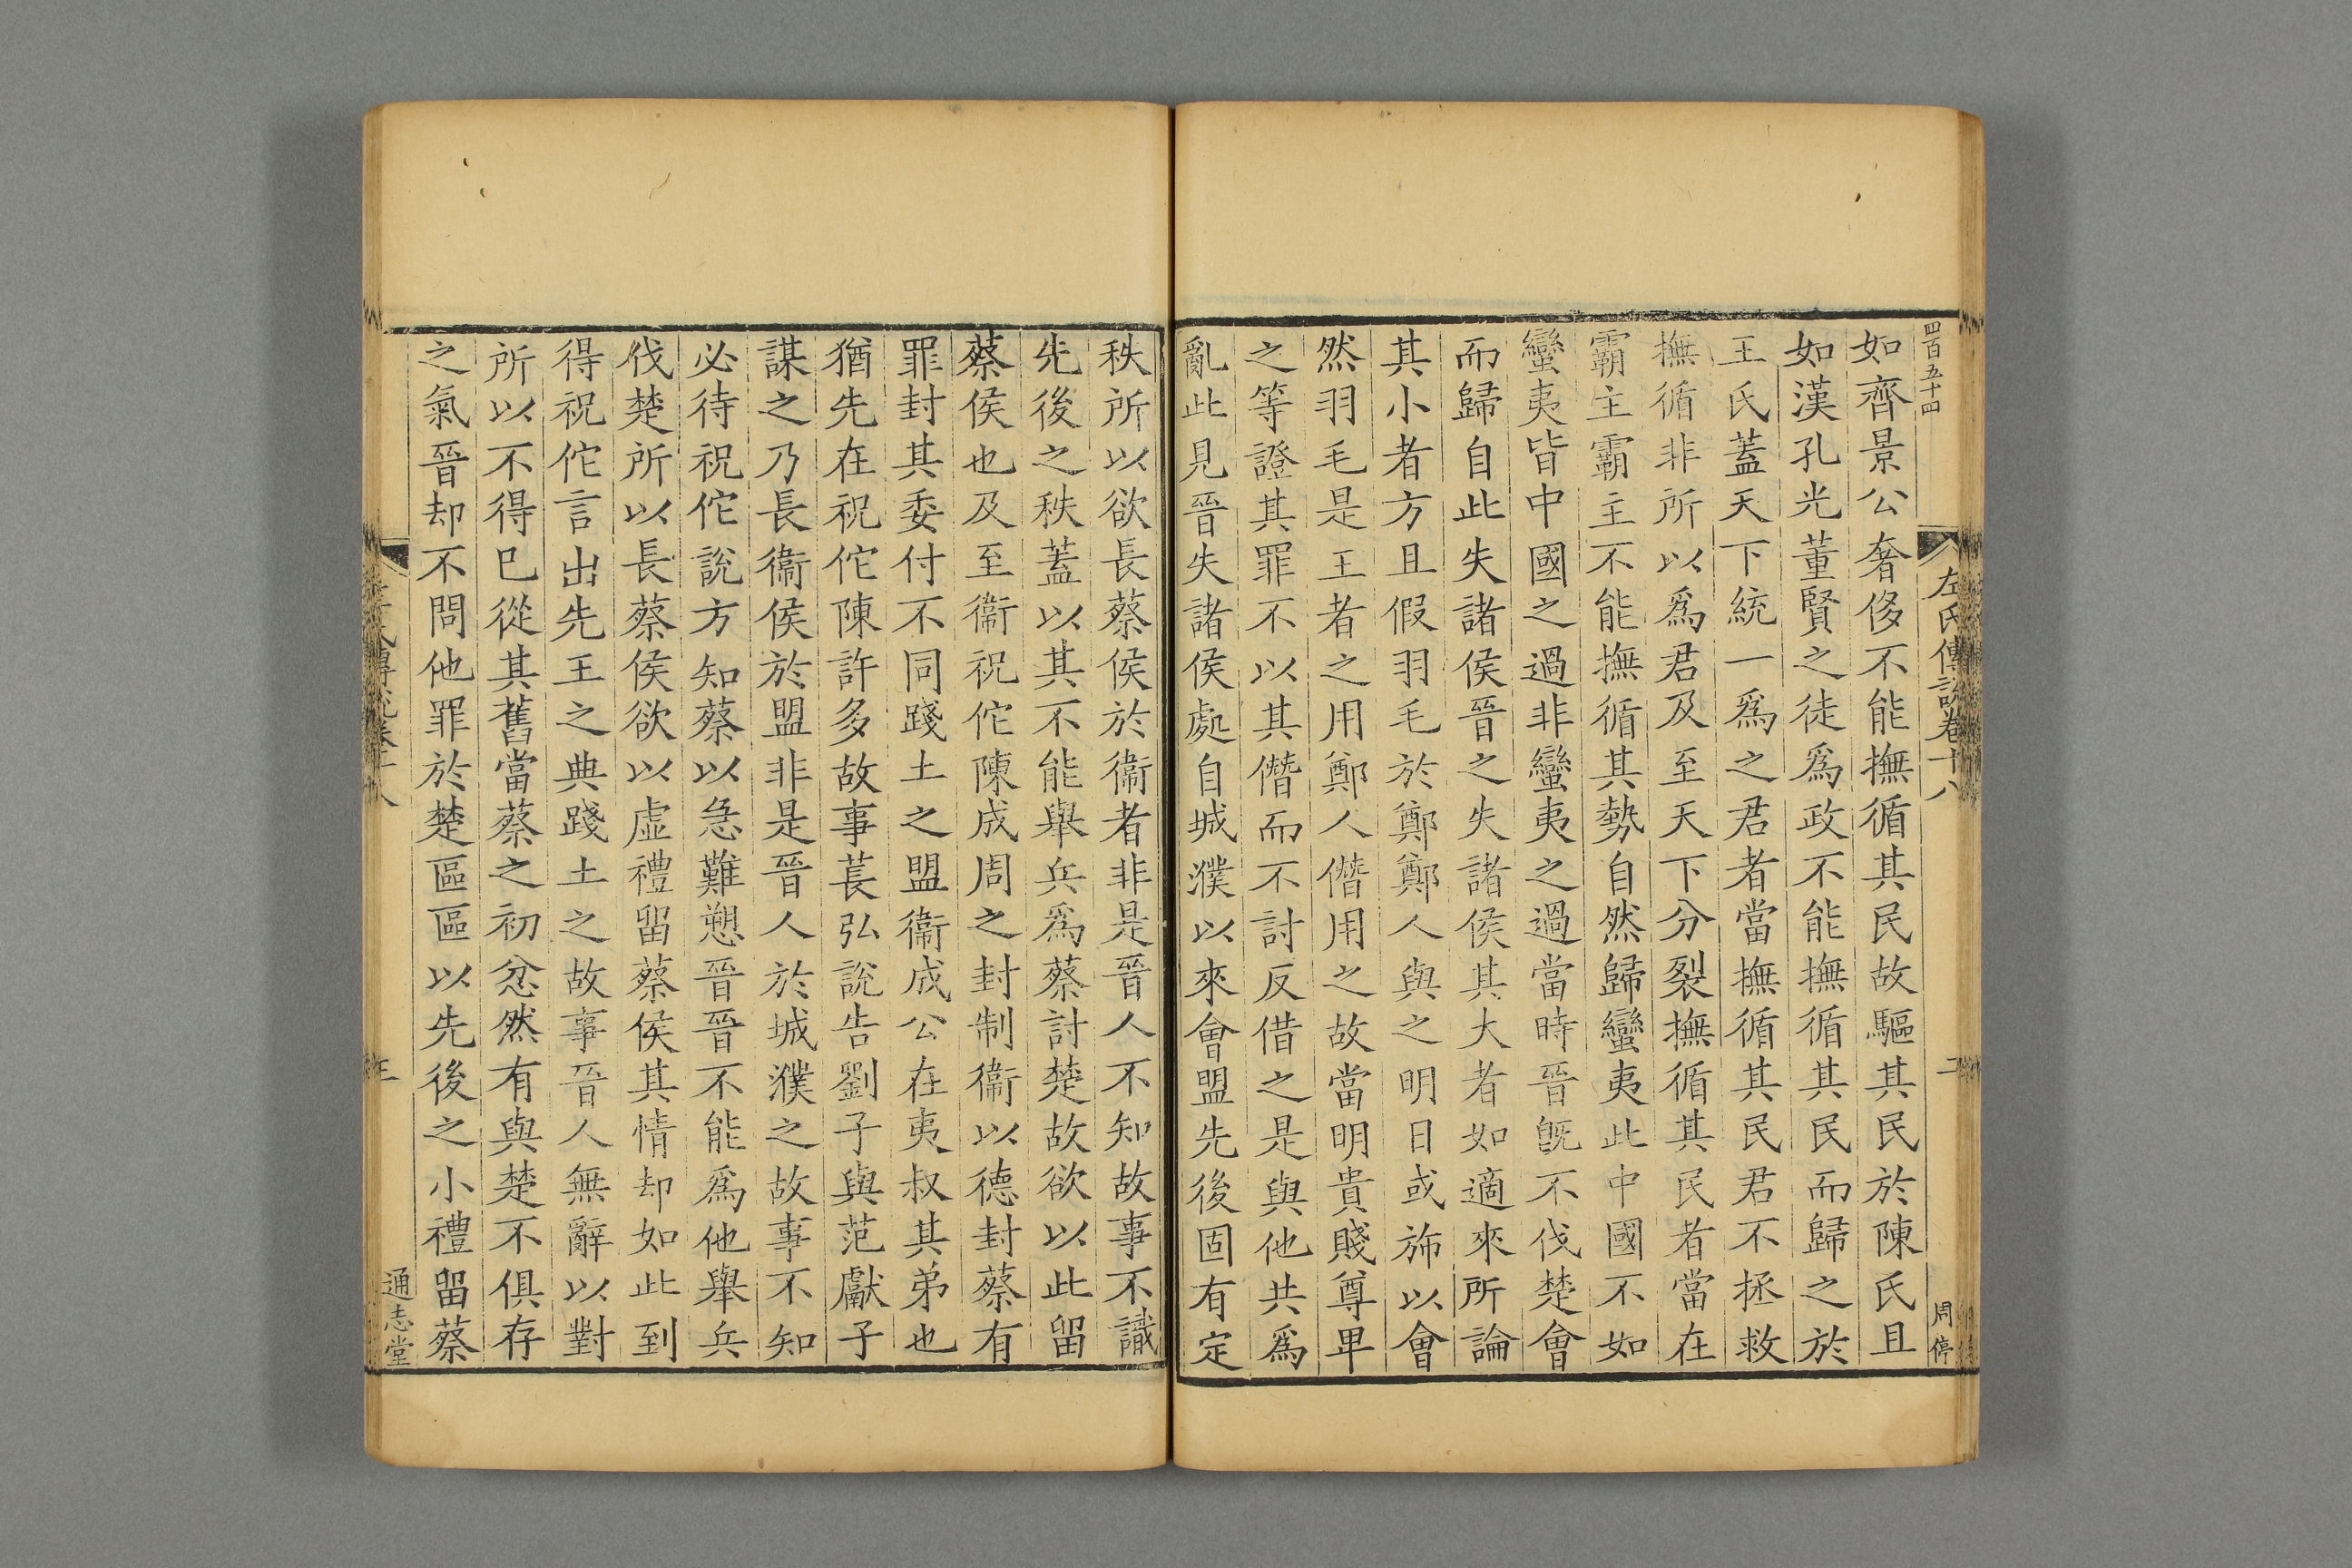 四百五十四
左氏傳說卷十八
二
周停
如齊景公奢侈不能撫循其民故驅其民於陳氏且
如漢孔光董賢之徒爲政不能撫循其民而歸之於
王氏蓋天下統一爲之君者當撫循其民君不拯救
撫循非所以爲君及至天下分裂撫循其民者當在
霸主霸主不能撫循其勢自然歸蠻夷此中國不如
蠻夷皆中國之過非蠻夷之過當時晉旣不伐楚會
而歸自此失諸侯晉之失諸侯其大者如適來所論
其小者方且假羽毛於鄭鄭人與之明日或旆以會
然羽毛是王者之用鄭人僭用之故當明貴賤尊卑
之等證其罪不以其僭而不討反借之是與他共爲
亂此見晉失諸侯處自城濮以來會盟先後固有定
秩所以欲長蔡侯於衞者非是晉人不知故事不識
先後之秩蓋以其不能舉兵爲蔡討楚故欲以此留
蔡侯也及至衞祝佗陳成周之封制衞以德封蔡有
罪封其委付不同踐土之盟衞成公在夷叔其弟也
猶先在祝佗陳許多故事萇弘說告劉子與范獻子
謀之乃長衞侯於盟非是晉人於城濮之故事不知
必待祝佗說方知蔡以急難愬晉晉不能爲他舉兵
伐楚所以長蔡侯欲以虛禮留蔡侯其情却如此到
得祝佗言出先王之典踐土之故事晉人無辭以對
所以不得已從其舊當蔡之初忿然有與楚不俱存
之氣晉却不問他罪於楚區區以先後之小禮留蔡
通志堂